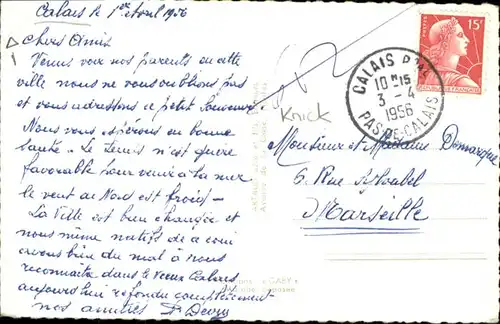 Calais le 1er Avril 1956
Chers Amis
Venus voir nos parents en cette
ville nous ne vous oublions pas
et vous adressons ce petit souvenir
Nous vous espérons en bonne
santé - Le temps n'est guère
favorable pour venir à la mer
le vent du Nord est froid -
La Ville est bien changée et
nous même natifs de ce coin
avons bien du mal à nous
reconnaitre dans le vieux Calais
aujourd'hui refondu complètement
nos amitiés
Knick
CALAIS
10 H 15
3 - 4
1956
PAS-DE-CALAIS
POSTES
15F
REPUBLIQUE FRANÇAISE
Monsieur et Madame
6 Rue
Marseille
"GABY"